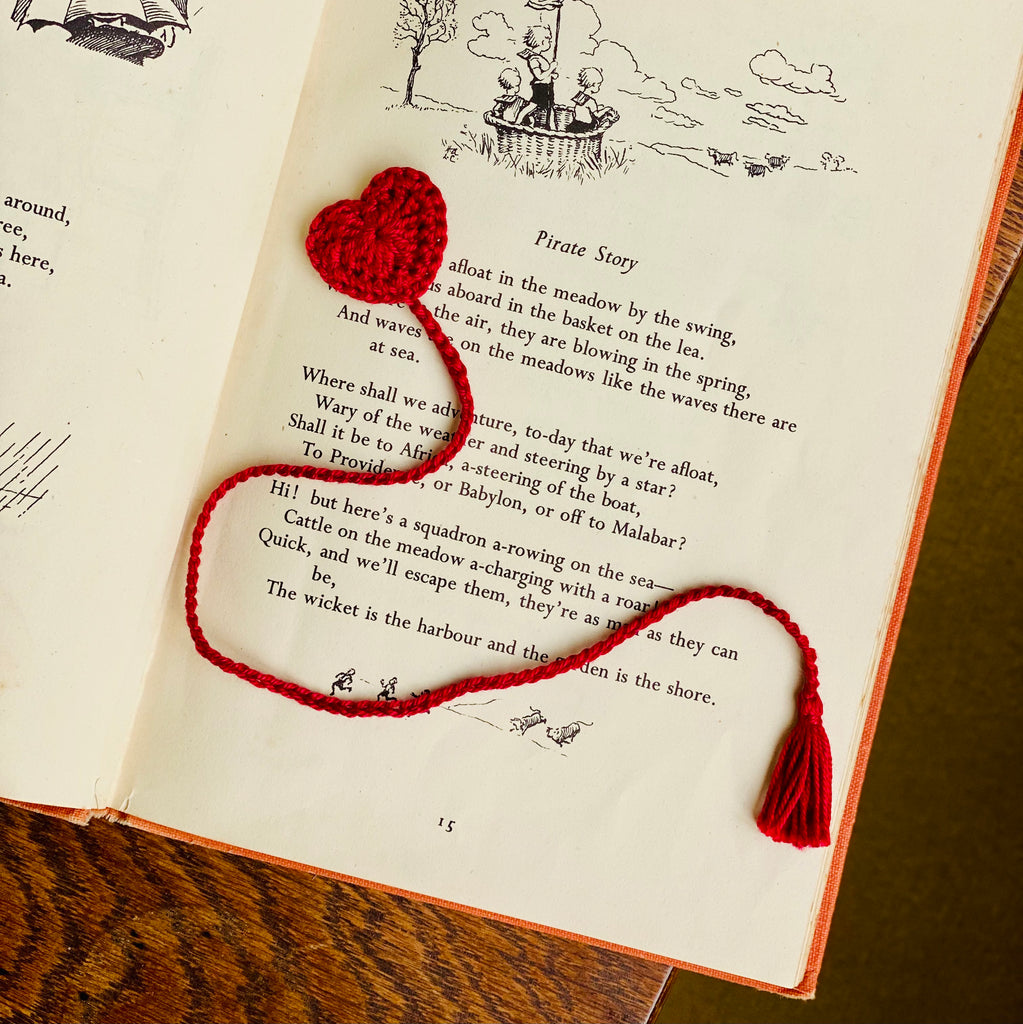 around,
ree,
s here,
a.
Pirate Story
afloat in the meadow by the swing,
us aboard in the basket on the lea.
the air, they are blowing in the spring,
And waves on the meadows like the waves there are
at sea.
Where shall we adventure, to-day that we're afloat,
Wary of the weather and steering by a star?
Shall it be to Africa, a-steering of the boat,
To Providence, or Babylon, or off to Malabar?
Hi! but here's a squadron a-rowing on the sea—
Cattle on the meadow a-charging with a roar!
Quick, and we'll escape them, they're as mad as they can
be,
The wicket is the harbour and the garden is the shore.
15